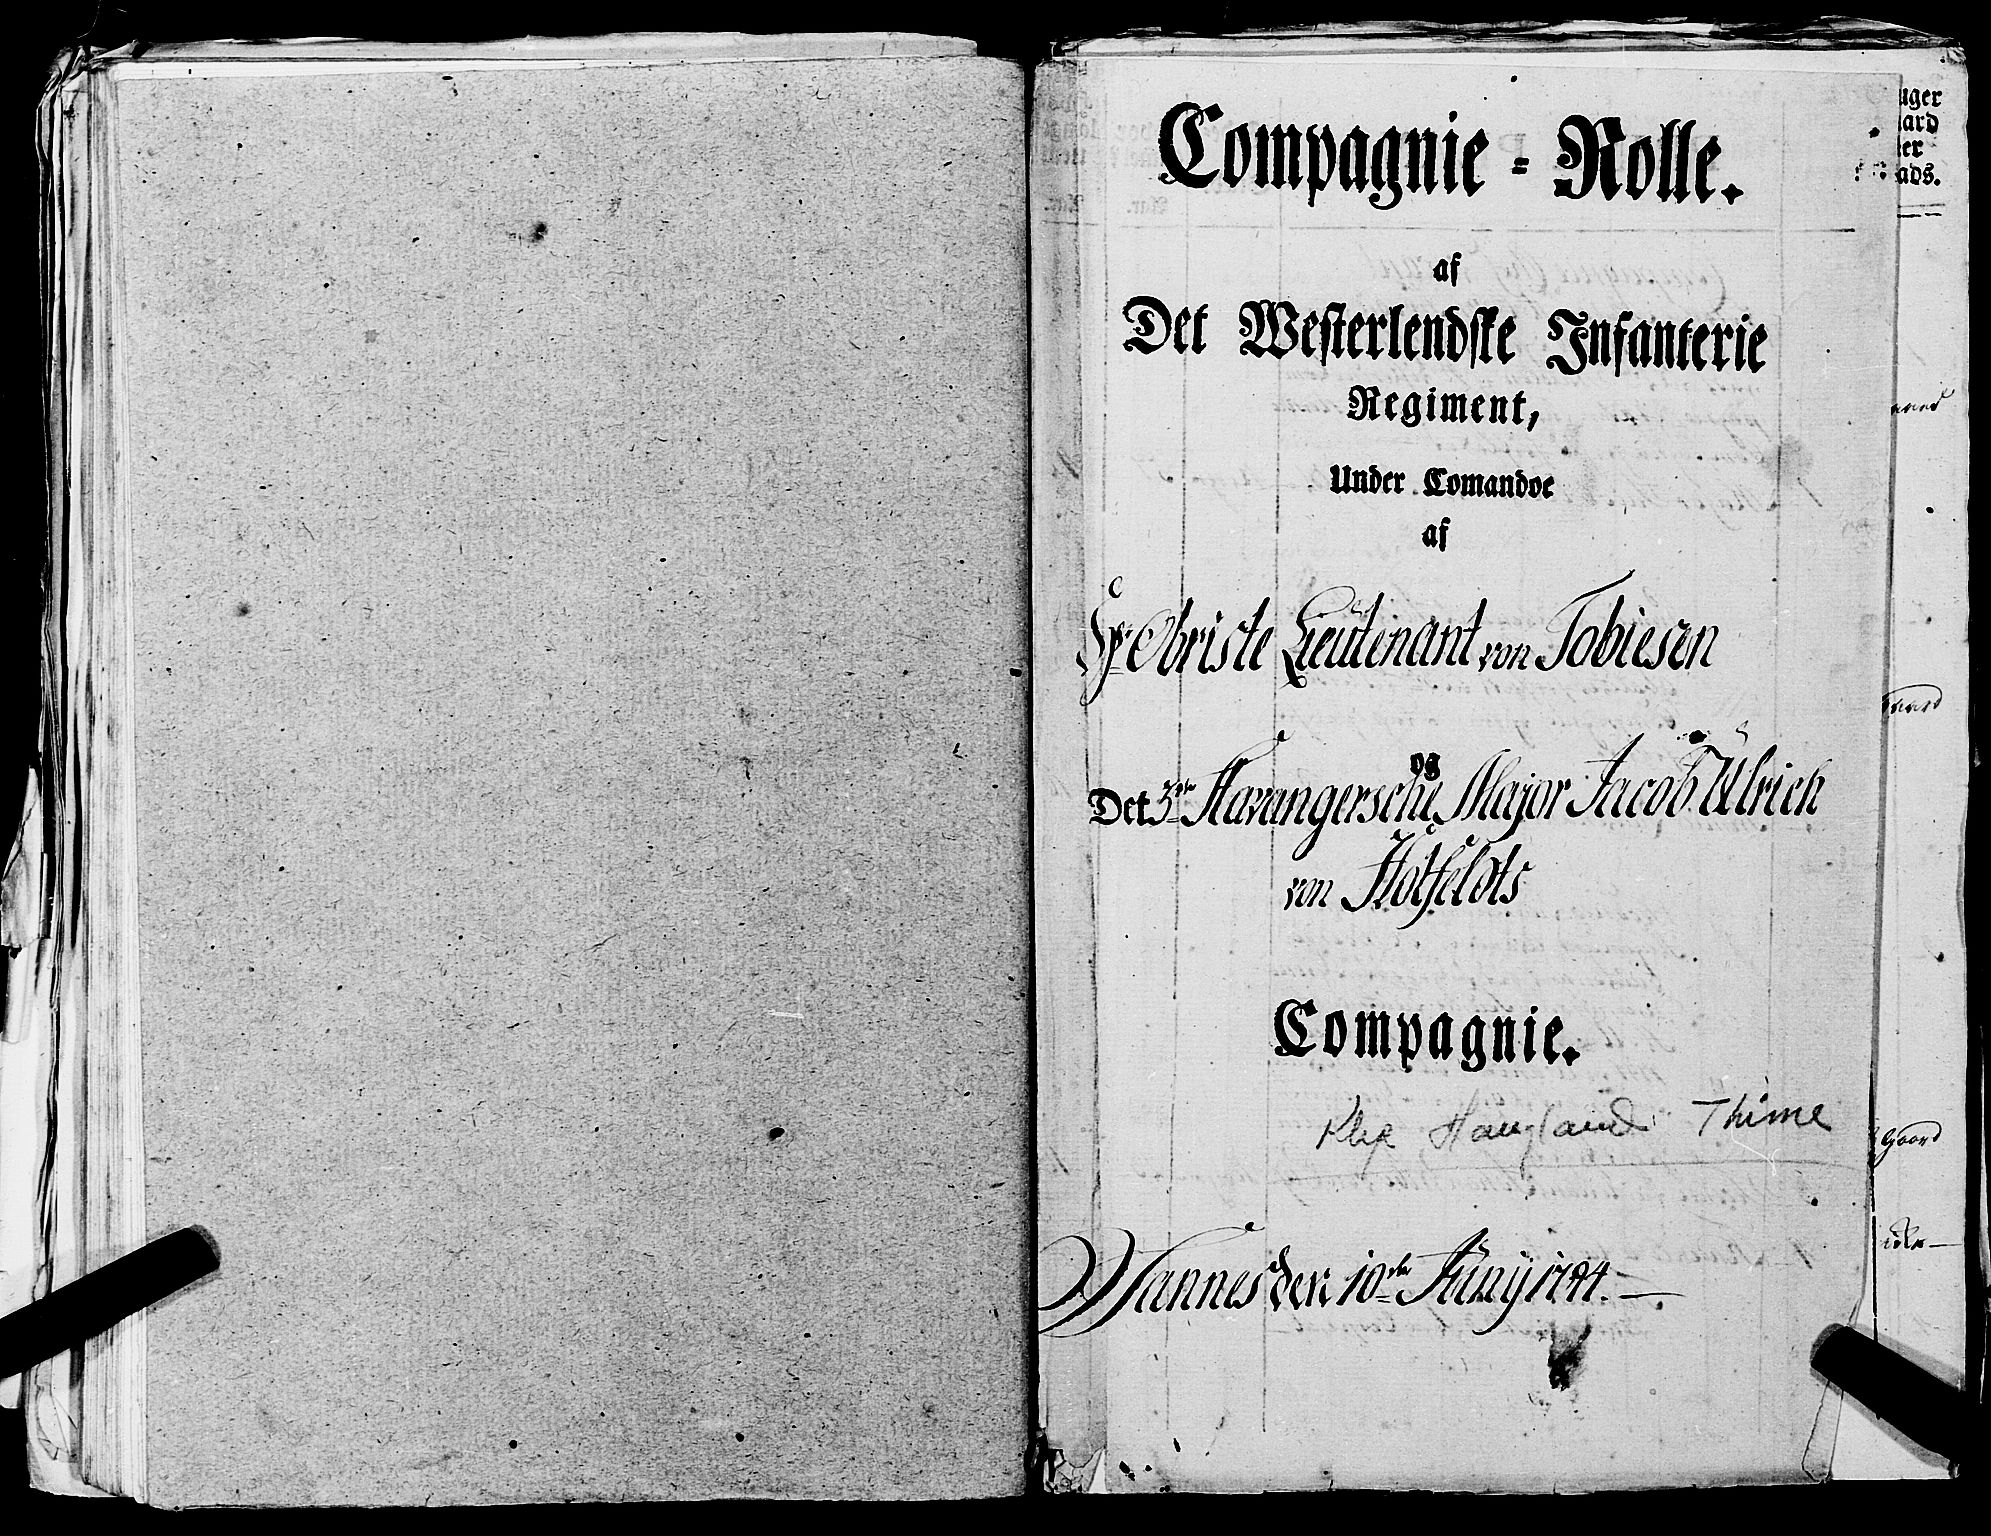 Compagnie = Rolle.
af
Det Westerlendske Infanterie
Regiment,
Under Comandoe
af
Hr. Obriste Lieutenant von Tobiesen
og
Det 3de Stavangersche Major Jacob Ulrich
von Hotfeldts
Compagnie.
Klep Haugland Thime
Hannes den 10de Junij 1784.